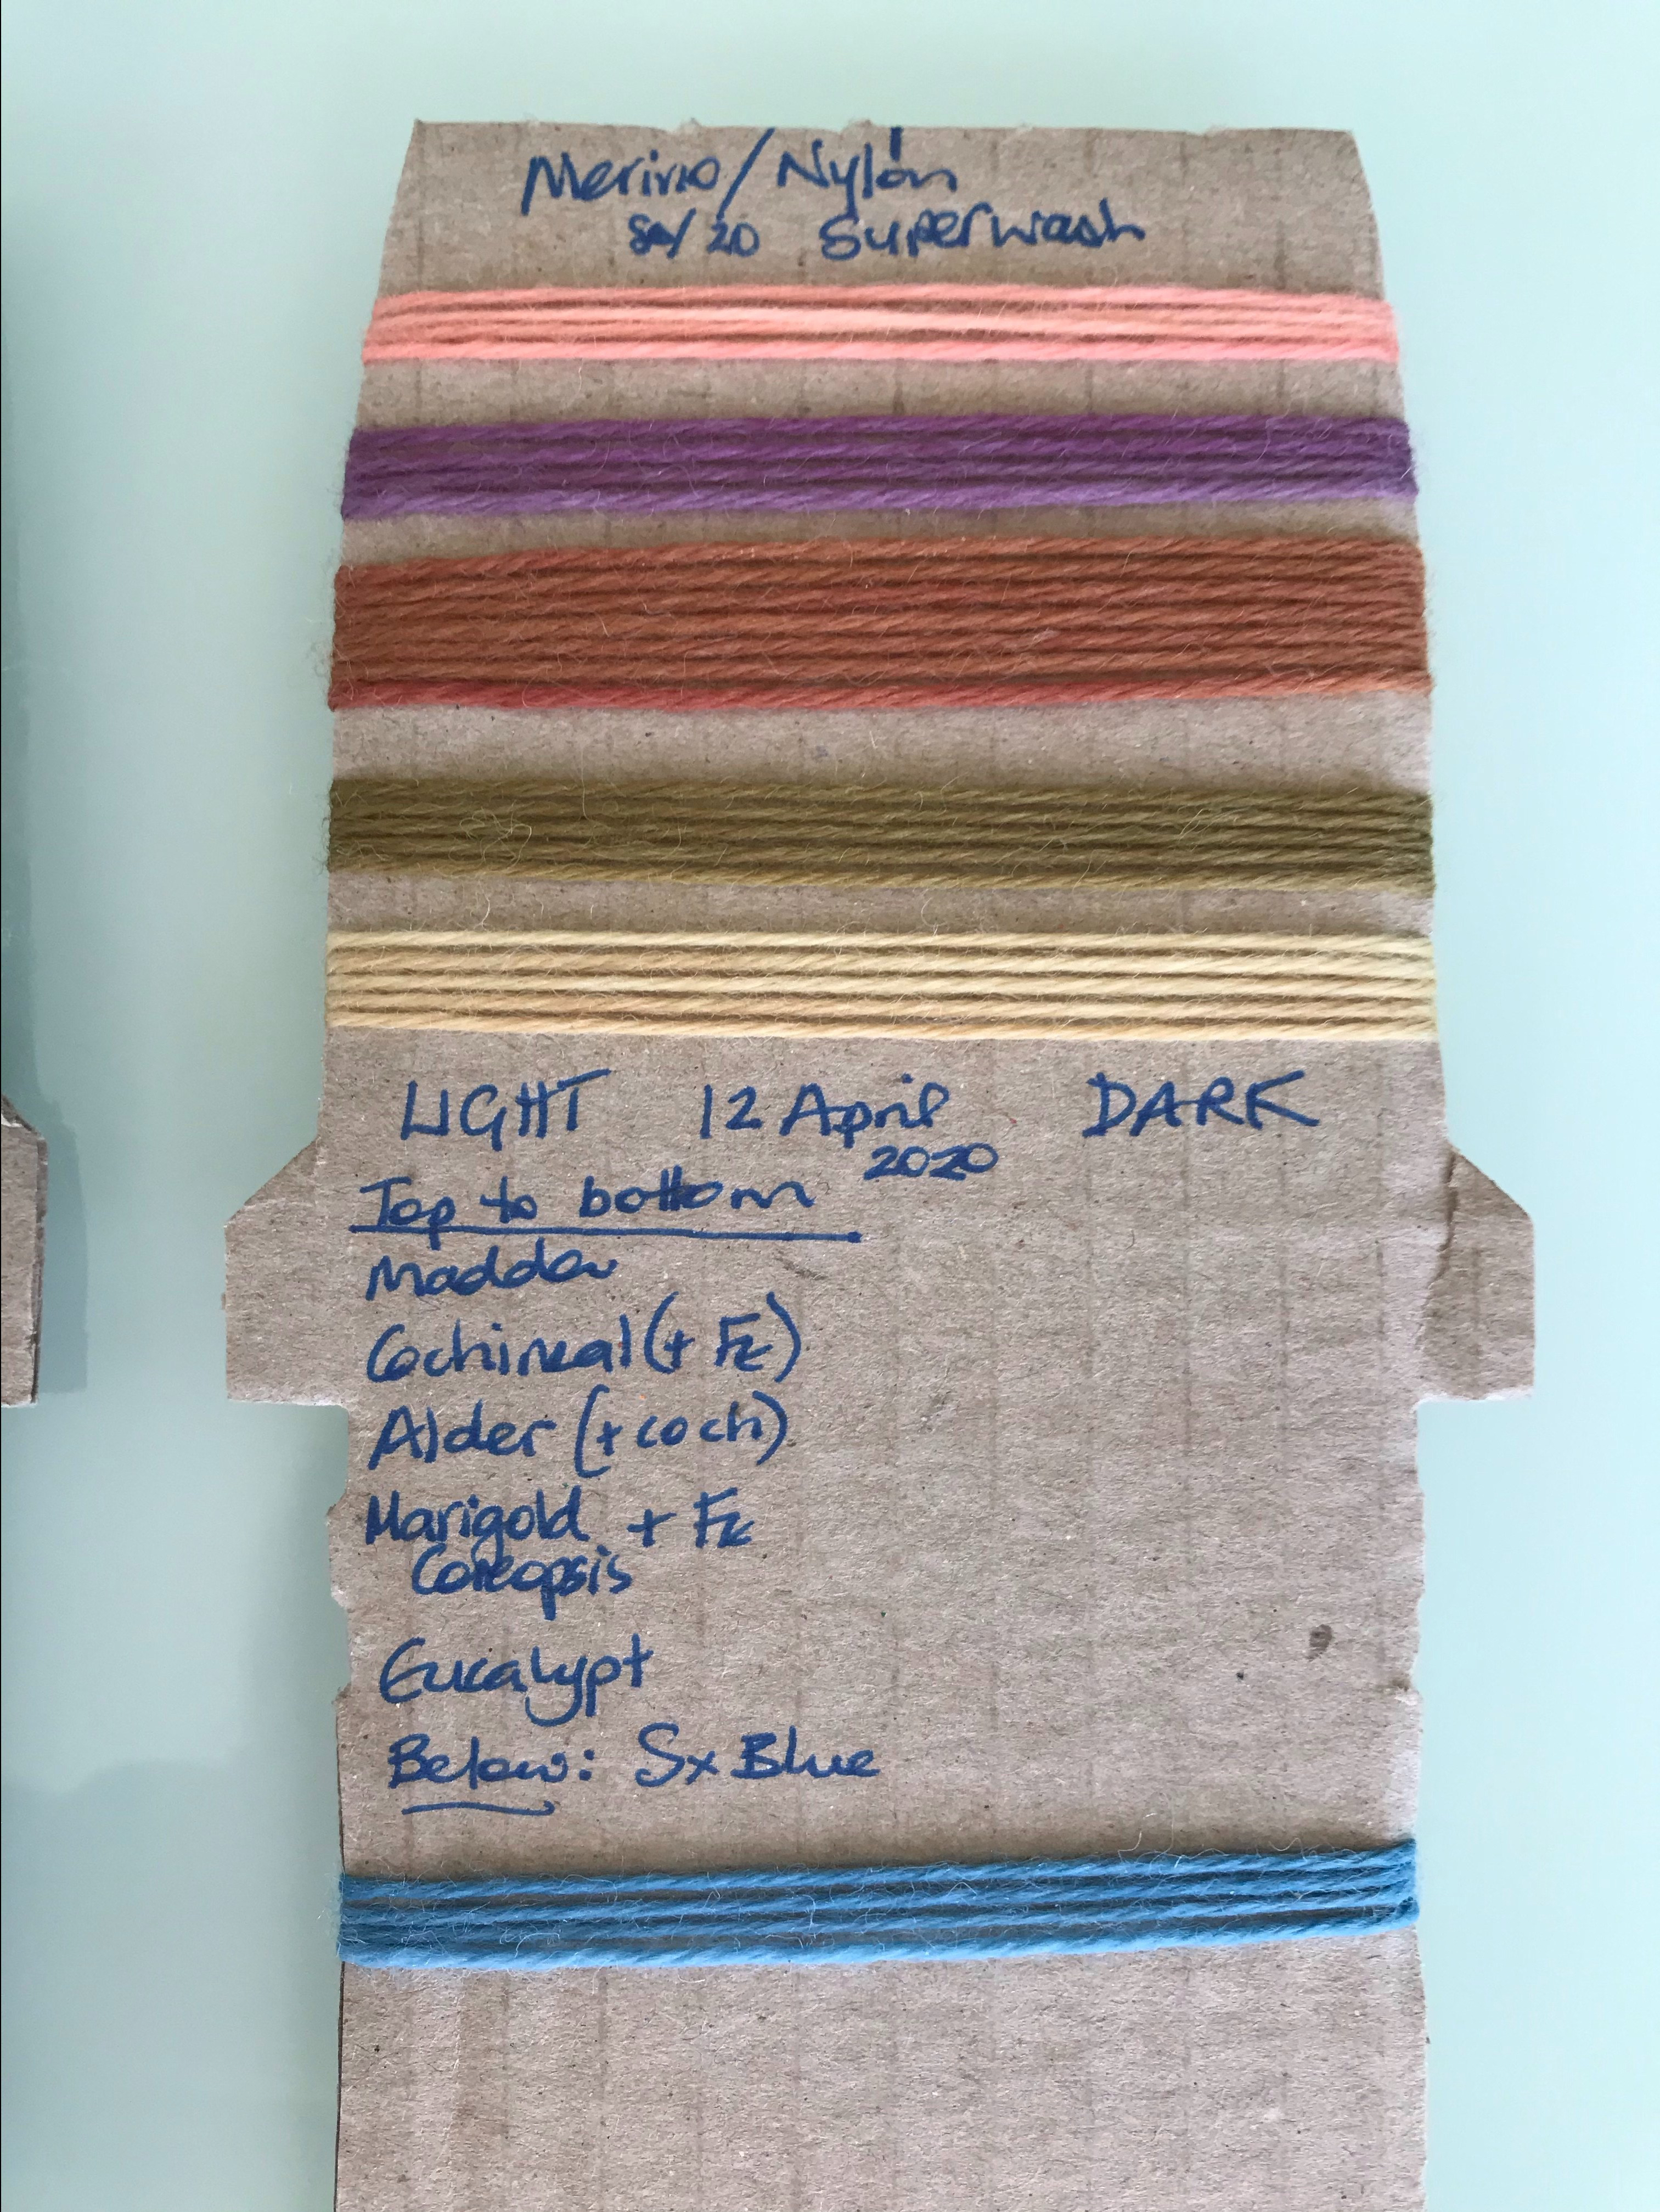 Merino/Nylon
80/20 Superwash
LIGHT 12 April DARK
2020
Top to bottom
Madder
Cochineal (+ Fe)
Alder (+ coch)
Marigold + Fe
Coreopsis
Eucalypt
Below: Sx Blue